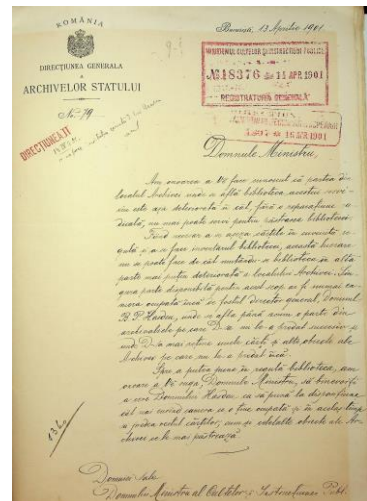 ROMÂNIA
DIRECȚIUNEA GENERALA
A
ARCHIVELOR STATULUI
No. 79
București, 13 Aprilie 1901
MINISTERUL CULTELOR ȘI INSTRUCȚIUNII PUBLICE
No 18376 11 APR 1901
REGISTRATURA GENERALĂ
DIRECȚIUNEA II
Domnule Ministru,
Am onoarea a Vě face cunoscut că partea din
localul Archivei unde se află biblioteca acestui servi-
ciu este așa deteriorată în cât, fără o reparațiune ra-
dicală, nu mai poate servi pentru păstrarea bibliotecei.
Fiind nevoe a se așeza cărțile în cuvenita re-
gulă și a se face inventarul bibliotecei, această lucrare
nu se poate face de cât mutându-se biblioteca în altă
parte mai puțin deteriorată a localului Archivei. Sin-
gura parte disponibilă pentru acest scop ar fi numai ca-
mera ocupată încă de fostul director general, Domnul
B. P. Hasdeu, unde se află până acum o parte din
archivalele pe care D-sa nu le-a predat succesor și
unde D-sa mai reține unele cărți și alte obiecte ale
Archivei pe care nu le-a predat încă.
Spre a putea pune în regulă biblioteca, am
onoare a Vě ruga, Domnule Ministru, să binevoiți
a scrie Domnului Hasdeu ca să pună la dispozițiune
cât mai curând camera ce o ține ocupată și în același timp
a preda restul cărților, cum și celelalte obiecte ale Ar-
chivei ce le mai păstrează.
Domniei Sale
Domnului Ministru al Cultelor și Instrucțiunei Publ.